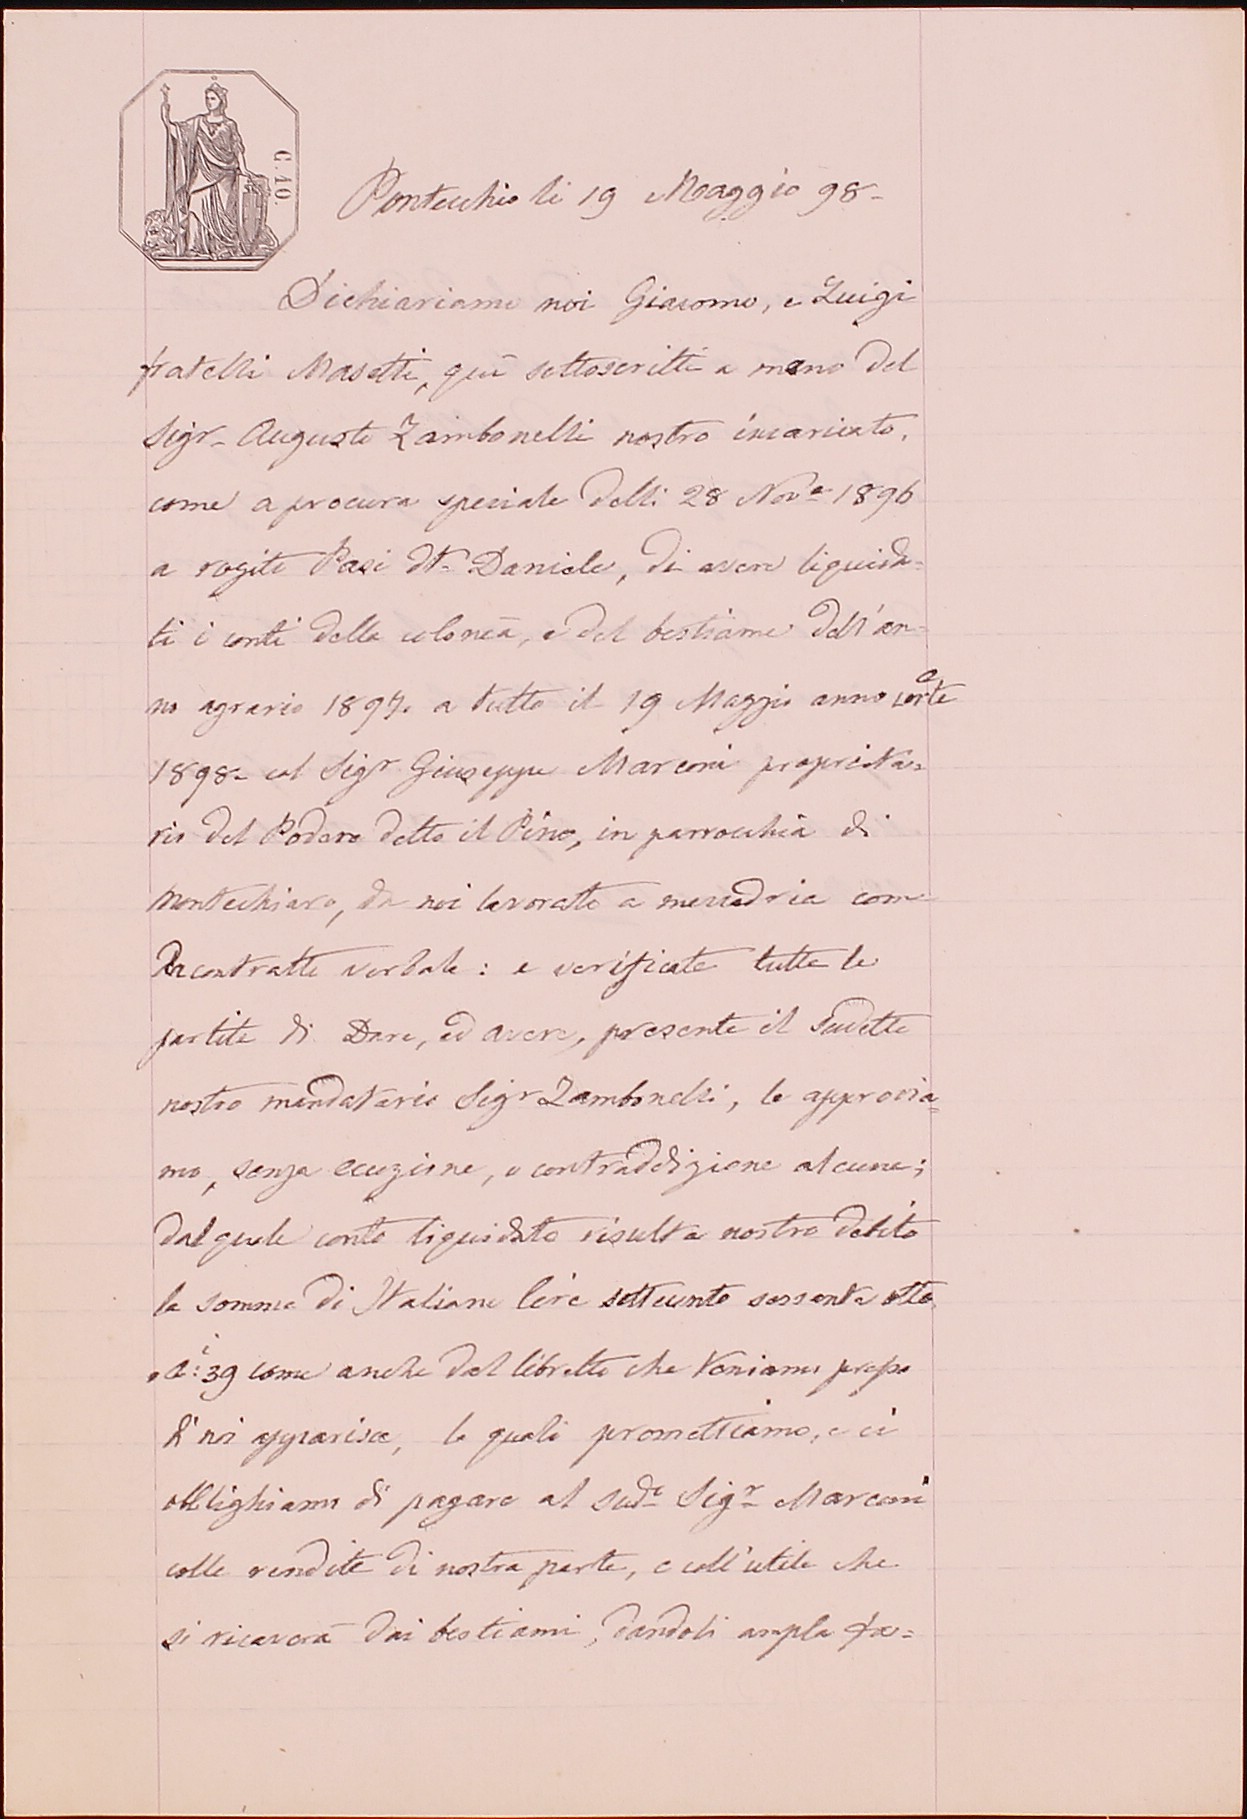 C. 10.
Pontecchio li 19 Maggio 98-
Dichiariamo noi Giacomo, e Luigi
fratelli Masetti, quì sottoscritti a mano del
Sigr- Augusto Zambonelli nostro incaricato,
come a procura speciale delli 28 Nove 1896
a rogito Pasi Dr- Daniele, di avere liquida=
ti i conti della colonìa, e del bestiame dell'an=
no agrario 1897. a tutto il 19 Maggio anno corte
1898- col Sigr Giuseppe Marconi proprieta=
rio del Podere detto il Pino, in parrocchia di
Montechiaro, da noi lavorato a mezzadria come
Da contratto verbale: e verificate tutte le
partite di Dare, ed avere, presente il sudetto
nostro mandatario Sigr Zambonelli, le approvia=
mo, senza eccezione, o contraddizione alcuna;
dal quale conto liquidato risulta nostro debito
la somma di Italiane lire settecento sessanta otto
e ci: 39 come anche dal libretto che teniamo presso
di noi apparisce, le quali promettiamo, e ci
obblighiamo di pagare al sudo Sigr- Marconi
colle rendite di nostra parte, e coll'utile che
si ricaverà dai bestiami, dandoli ampla fa=